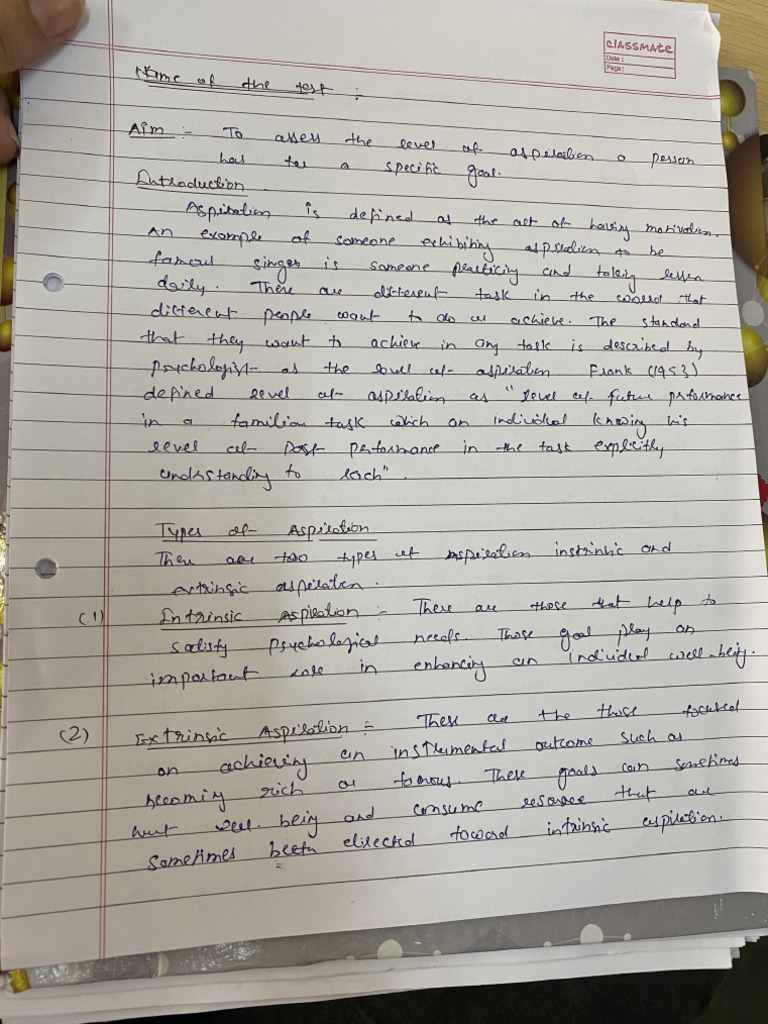 classmate
Date :
Page :
Name of the test :
Aim :- To assess the level of aspiration a person
has for a specific goal.
Introduction
Aspiration is defined as the act of having motivation.
An example of someone exhibiting aspiration to be
famous singer is someone practicing and taking lesson
daily. There are different task in the world that
different people want to do or achieve. The standard
that they want to achieve in any task is described by
psychologist as the level of aspiration Frank (1953)
defined level of aspiration as "level of future prformance
in a familiar task which an individual knowing his
level of past performance in the task explicitly
undrstanding to reach".
Types of Aspiration
There are two types of aspiration instrinhic and
extrinsic aspiration.
(1) Intrinsic Aspiration :- There are those that help to
satisfy psychological needs. Those goal play an
important role in enhancing an individual well-being.
(2) Extrinsic Aspiration :- These are the those focused
on achieving an instrumental outcome such as
becoming rich or famous. These goals can sometimes
hurt well-being and consume resource that are
sometimes been directed toward intrinsic aspiration.